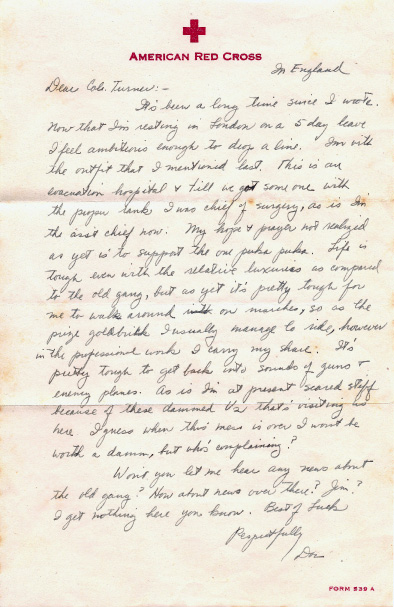 AMERICAN RED CROSS
In England
Dear Col. Turner:-
It's been a long time since I wrote.
Now that I'm resting in London on a 5 day leave
I feel ambitious enough to drop a line. I'm with
the outfit that I mentioned last. This is an
evacuation hospital & till we got some one with
the proper rank I was chief of surgery, as is I'm
the ass't chief now. My hope & prayer not realized
as yet is to support the one puka puka. Life is
tough even with the relative luxuries as compared
to the old gang, but as yet it's pretty tough for
me to walk around with on marches, so as the
prize goldbrick I usually manage to ride, however
in the professional work I carry my share. It's
pretty tough to get back into sounds of guns &
enemy planes. As is I'm at present scared stiff
because of these dammed V2 that's visiting us
here. I guess when this mess is over I won't be
worth a damn, but who's complaining?
Won't you let me hear any news about
the old gang? How about news over there? Jim?
I get nothing here you know. Best of Luck
Respectfully
FORM 539 A